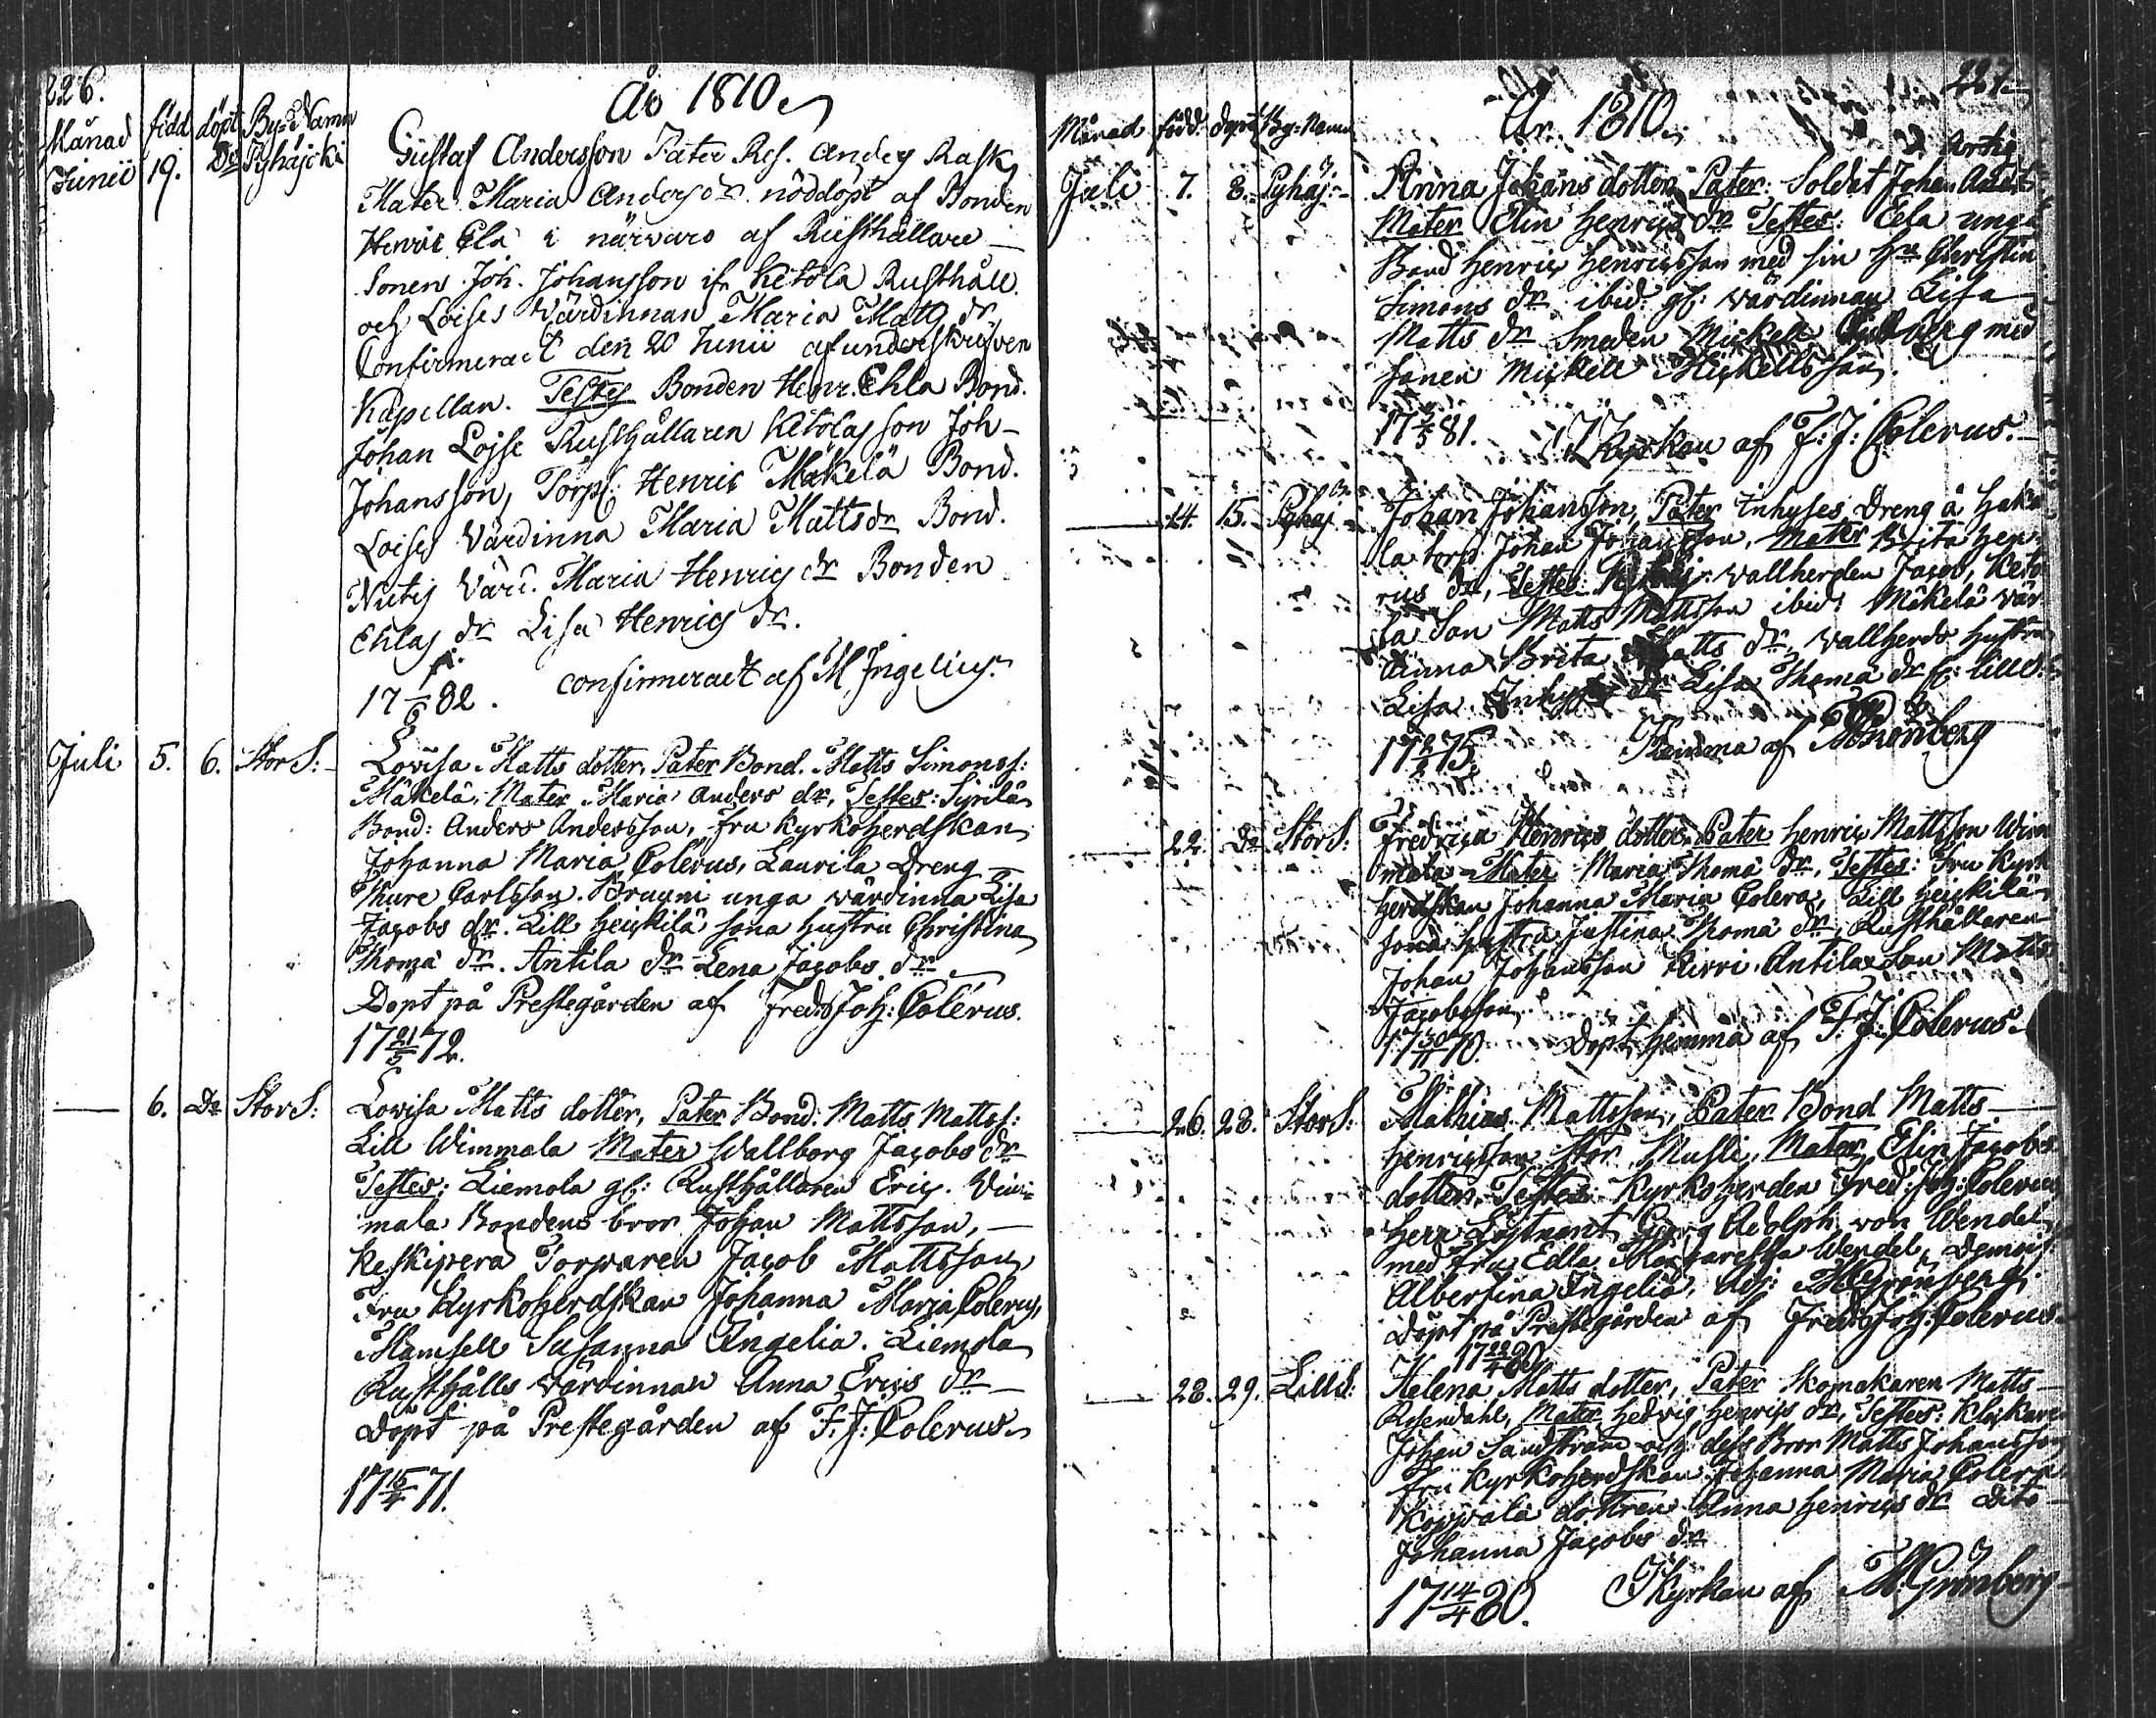 226.
År 1810
Månad född döpt By-Namn
Junii 19. Do Pyhäjocki
Gustaf Andersson Pater Res. Anders Rask
Mater Maria Anders dr nöddöpt af Bonden
Henric Ela i närvaro af Rusthållare
Sonen Joh. Johansson ifr. Ketola Rusthåll.
och Loises Värdinnan Maria Matts dr
Confirmeradt den 20 Junii af underskrifven
Kapellan. Testes Bonden Henr. Ehla Bond.
Johan Lojse Rusthållaren Ketolas son Joh-
Johansson, Torp: Henric Mäkelä Bond.
Loises Värdinna Maria Mattsdr Bond.
Nutis Värd. Maria Henrics dr Bonden
Ehlas dr Lisa Henrics dr.
17 1/6 82. confirmeradt af M Ingelius.
Juli 5. 6. Stor S:
Lovisa Matts dotter, Pater Bond. Matts Simonss:
Mäkelä, Mater Maria Anders dr, Testes: Syrilä
Bond: Anders Andersson, fru Kyrkoherdskan
Johanna Maria Polerus, Laurila Dreng
Thure Carlsson. Brugni unga värdinna Lisa
Jacobs dr. Lill Heickilä sona hustru Christina
Thoma dr. Antila dr Lena Jacobs dr
Döpt på Prestegården af Fred: Joh: Polerus.
17 21/5 72.
6. Do Stor S:
Lovisa Matts dotter, Pater Bond. Matts Mattss:
Lill Wimmala Mater Wallborg Jacobs dr
Testes: Liemola gl: Rusthållaren Eric. Wim-
mala Bondens bror Johan Mattsson,
Keskipera Torparen Jacob Mattsson
Fru Kyrkoherdskan Johanna Maria Polerus,
Mamsell Susanna Ingelia. Liemola
Rusthålls värdinnan Anna Erics dr
Döpt på Prestegården af F. J: Polerus
17 15/4 71.
227.
År 1810
Månad född. döpt By-Namn
Juli 7. 8. Pyhäj:
Anna Johans dotter Pater: Soldat Johan
Mater Elin Henrics dr Testes: Eela unga
Bond Henric Henricsson med sin Hu Christin
Simons dr ibid. gl: värdinnan Lisa
Matts dr Smeden Mickell med
sonen Mickell Mickellsson.
81. I Kyrkan af F: J: Polerus.
14. 15. Pyhäj
Johan Johansson, Pater Inhyses Dreng å Haka
la torp Johan Johansson, Mater Brita Hen
rics dr, Testes: vallherden Jacob, Keto
la Son Matts Mattsson ibid: Mäkelä vär
dinna Brita Matts dr, vallherds hustru
Lisa Inhyses dr Lisa Thoma dr
75. Hemma af M Grönberg
22. Do Stor S:
Fredrica Henrics dotter, Pater Henric Mattsson Wim
mala Mater Maria Thoma dr, Testes: Fru Kyrk
herdskan Johanna Maria Polera, Lill Heickilä
sona hustru Justina Thoma dr, Rusthållaren
Johan Johansson Antila Son Matts
Jacobsson.
17 30/11 70 Döpt hemma af F. J: Polerus.
26. 28. Stor S:
Mathias Mattsson, Pater Bond Matts
Henricsson Stor Mulli, Mater Elin Jacobs
dotter, Testes: Kyrkoherden Fred: Joh: Polerus
Herr Löjtnant Georg Adolph von Wendel
med fru Edla Margaretha Wendel, Demois
Albertina Ingelia, Adj: M Grönberg
Döpt på Prestegården af Fred: Joh: Polerus
17 22/4 80
28. 29. Lill S:
Helena Matts dotter, Pater Skomakaren Matts
Rosendahl, Mater Hedvig Henrics dr, Testes: Klockaren
Johan Sandström och dess Bror Matts Johansson
Fru Kyrkoherdskan Johanna Maria Polera
dottren Anna Henrics dr Dito
Johanna Jacobs dr
17 14/4 80. I Kyrkan af M. Grönberg